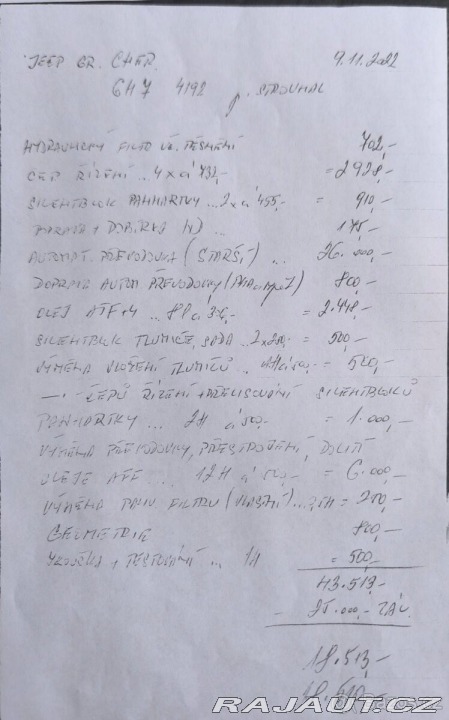 JEEP GR. CHER. 9.11.2022
6H7 4192 p. STROUHAL
HYDRAULICKÝ FILTR VČ. TĚSNĚNÍ 702,-
ČEP ŘÍZENÍ .. 4 x á 732,- = 2928,-
SILENTBLOK PANHARTKY ... 2 x á 455,- = 910,-
DOPRAVA + DOBÍRKA 175,-
AUTOMAT. PŘEVODOVKA (STARŠÍ) ... 26.000,-
DOPRAVA AUTOM. PŘEVODOVKY 800,-
OLEJ ATF+4 ... 8l á 306,- = 2.448,-
SILENTBLOK TLUMIČE, SADA .. 2x250,- = 500,-
VÝMĚNA ULOŽENÍ TLUMIČŮ .. 1H á 500,- = 500,-
-"- ČEPŮ ŘÍZENÍ + PŘELISOVÁNÍ SILENTBLOKŮ
PANHARTKY ... 2H á 500,- = 1.000,-
VÝMĚNA PŘEVODOVKY, PŘESTROJENÍ, DOLITÍ
OLEJE ATF ... 12H á 500,- = 6.000,-
VÝMĚNA PALIV. FILTRU (VLASTNÍ) ... = 250,-
GEOMETRIE 800,-
ZKOUŠKA + TESTOVÁNÍ ... 1H = 500,-
43.513,-
- 25.000,- ZÁL.
18.513,-
18.510,-
RAJAUT.CZ